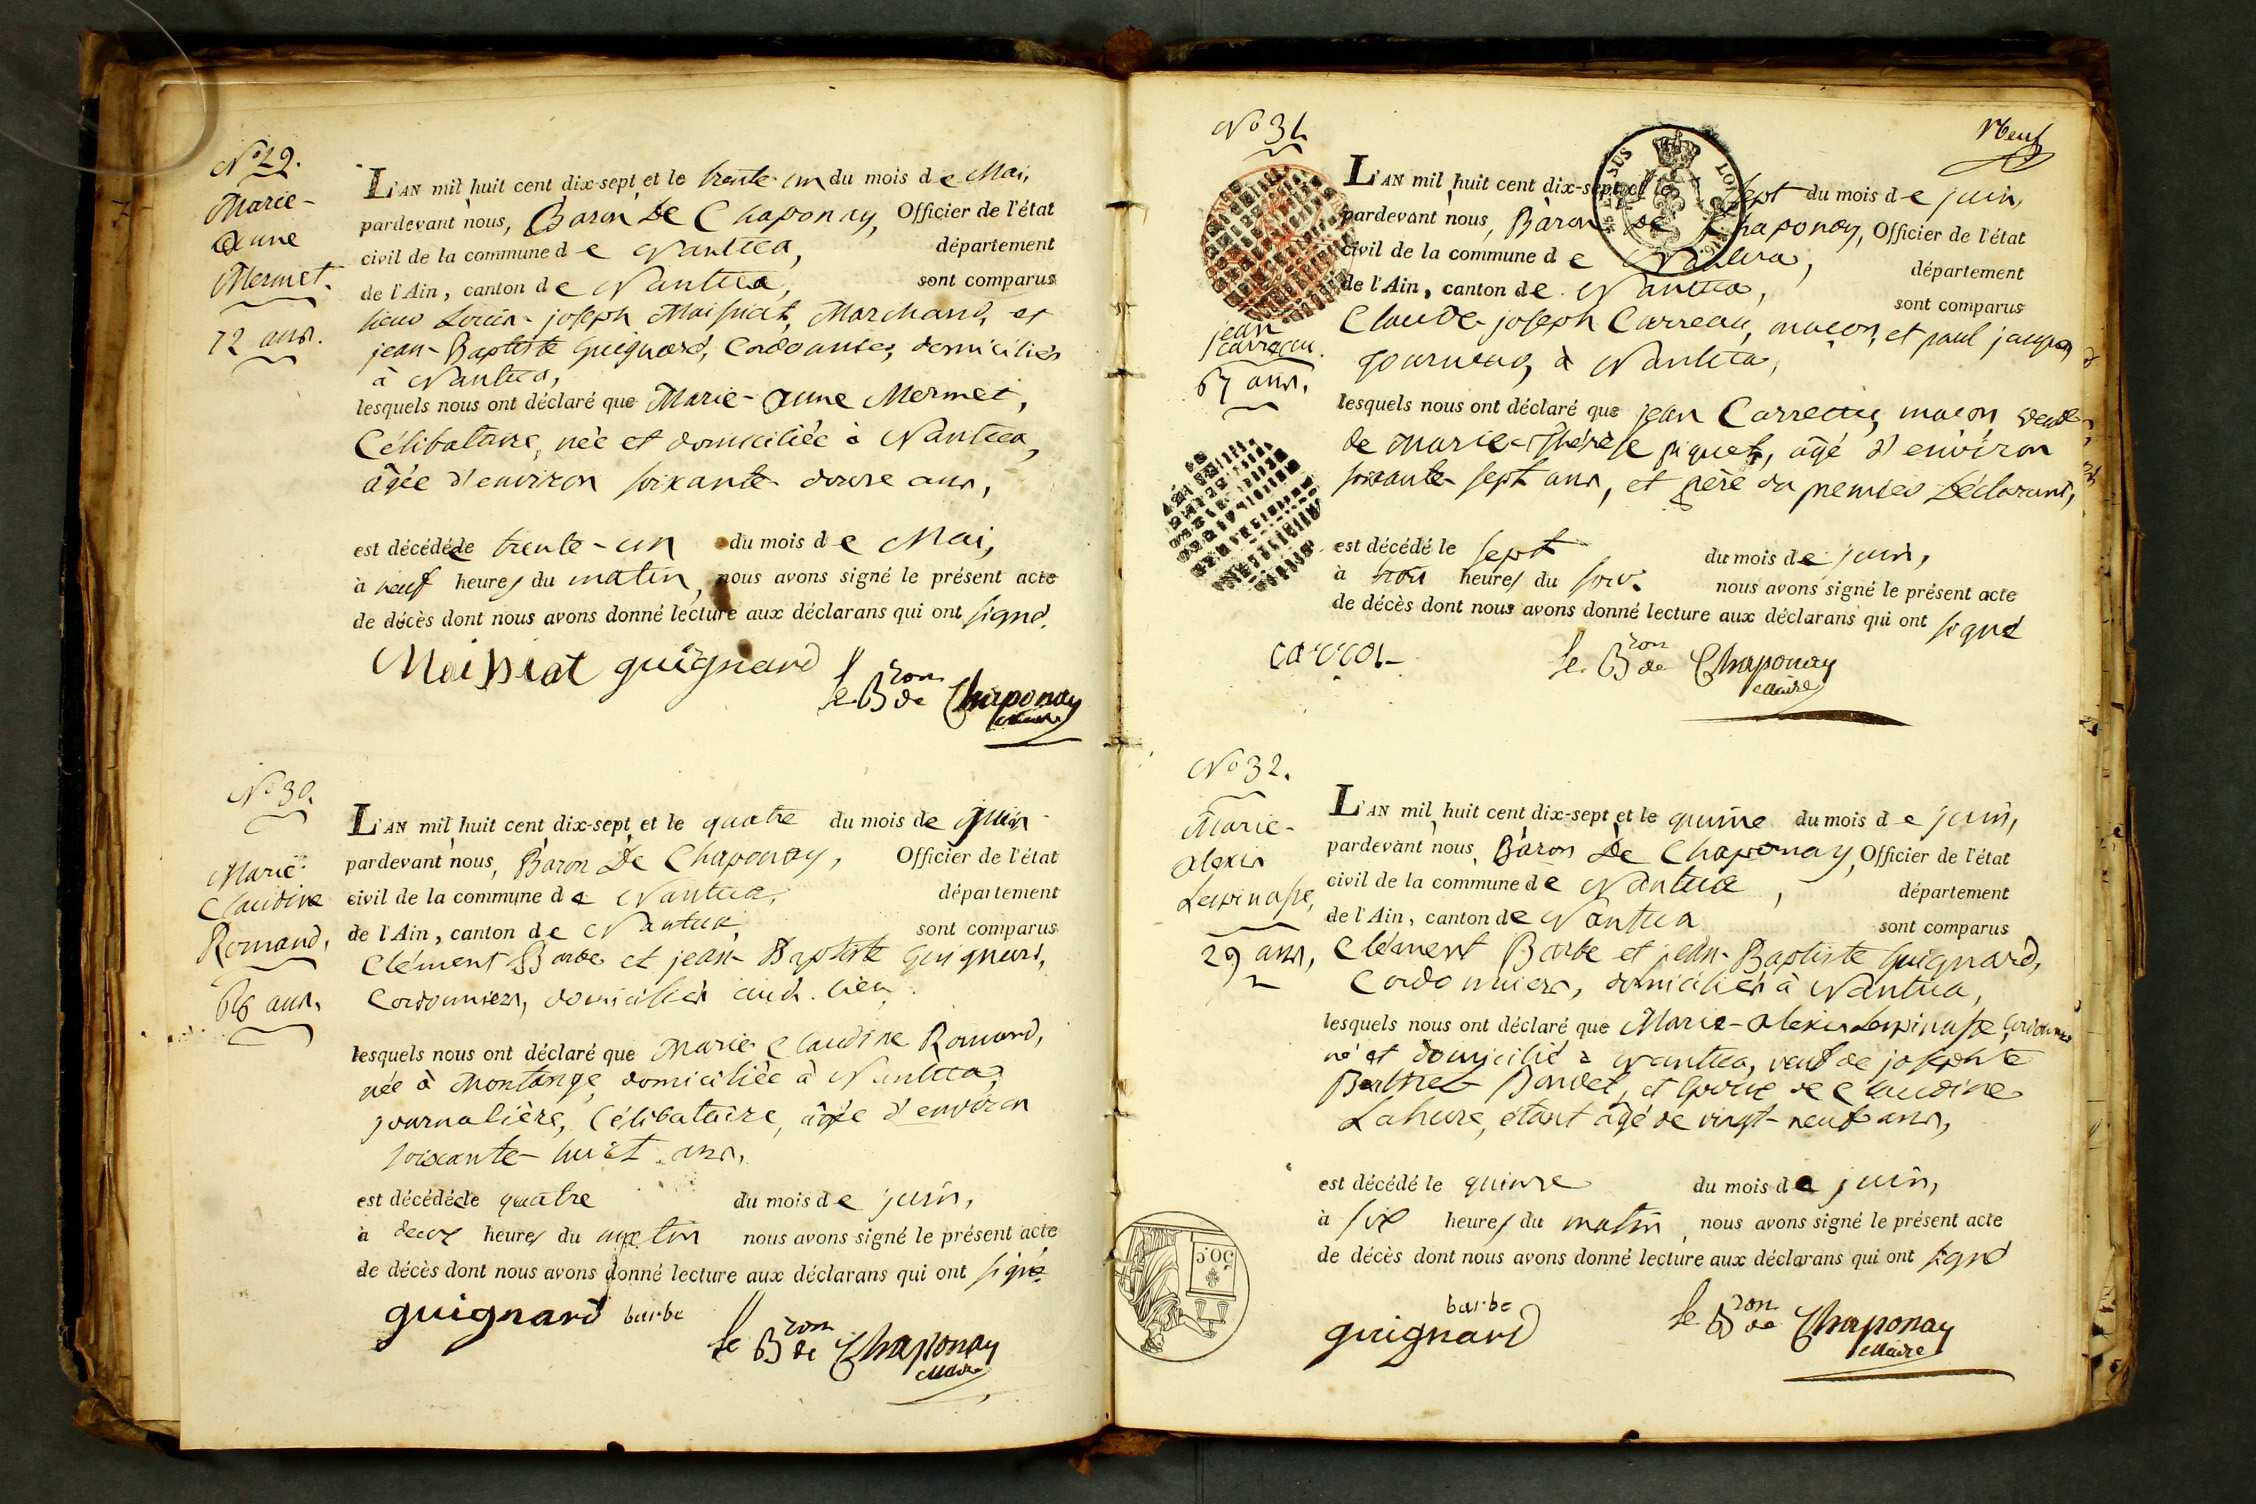 N° 29.
Marie-
Anne
Mermet.
72 ans.
L'AN mil huit cent dix-sept et le trente-un du mois de Mai,
pardevant nous, Baron De Chaponay, Officier de l'état
civil de la commune de Nantua, département
de l'Ain, canton de Nantua, sont comparus
sieurs Louis-joseph Maissiat, Marchand, et
jean-Baptiste Guignard, Cordonnier, domiciliés
à Nantua,
lesquels nous ont déclaré que Marie-Anne Mermet,
Célibataire, née et domiciliée à Nantua,
âgée d'environ soixante-douze ans,
est décédée le trente-un du mois de Mai,
à neuf heures du matin, nous avons signé le présent acte
de décès dont nous avons donné lecture aux déclarans qui ont signé.
Maissiat guignard
le Bron de Chaponay
Maire
N° 30.
Marie
Claudine
Romand,
68 ans.
L'AN mil huit cent dix-sept et le quatre du mois de juin
pardevant nous, Baron De Chaponay, Officier de l'état
civil de la commune de Nantua, département
de l'Ain, canton de Nantua, sont comparus
Clément Barbe et jean-Baptiste Guignard,
Cordonniers, domiciliés aud. lieu,
lesquels nous ont déclaré que Marie Claudine Romand,
née à Montange, domiciliée à Nantua,
journalière, Célibataire, âgée d'environ
soixante-huit ans,
est décédée le quatre du mois de juin,
à deux heures du matin nous avons signé le présent acte
de décès dont nous avons donné lecture aux déclarans qui ont signé
guignard barbe
le Bron de Chaponay
Maire
N° 31.
neuf
jean
Carreau.
67 ans.
L'AN mil huit cent dix-sept et le sept du mois de juin,
pardevant nous, Baron de Chaponay, Officier de l'état
civil de la commune de Nantua, département
de l'Ain, canton de Nantua, sont comparus
Claude-joseph Carreau, maçon, et paul jacques
à Nantua,
lesquels nous ont déclaré que jean Carreau, maçon, veuf
de Marie-Thérèse piquet, âgé d'environ
soixante-sept ans, et père du premier Déclarant,
est décédé le sept du mois de juin,
à trois heures du soir. nous avons signé le présent acte
de décès dont nous avons donné lecture aux déclarans qui ont signé
le Bron de Chaponay
Maire
N° 32.
Marie-
alexis
Lespinasse,
29 ans,
L'AN mil huit cent dix-sept et le quinze du mois de juin,
pardevant nous Baron De Chaponay, Officier de l'état
civil de la commune de Nantua, département
de l'Ain, canton de Nantua sont comparus
Clément Barbe et jean-Baptiste Guignard,
Cordonniers, domiciliés à Nantua,
lesquels nous ont déclaré que Marie-alexis Lespinasse, Cordonnier
né et domicilié à Nantua, veuf de josephte
et époux de Claudine
Lahure, étant âgé de vingt-neuf ans,
est décédé le quinze du mois de juin,
à six heures du matin, nous avons signé le présent acte
de décès dont nous avons donné lecture aux déclarans qui ont signé
barbe
guignard
le Bron de Chaponay
Maire
50C